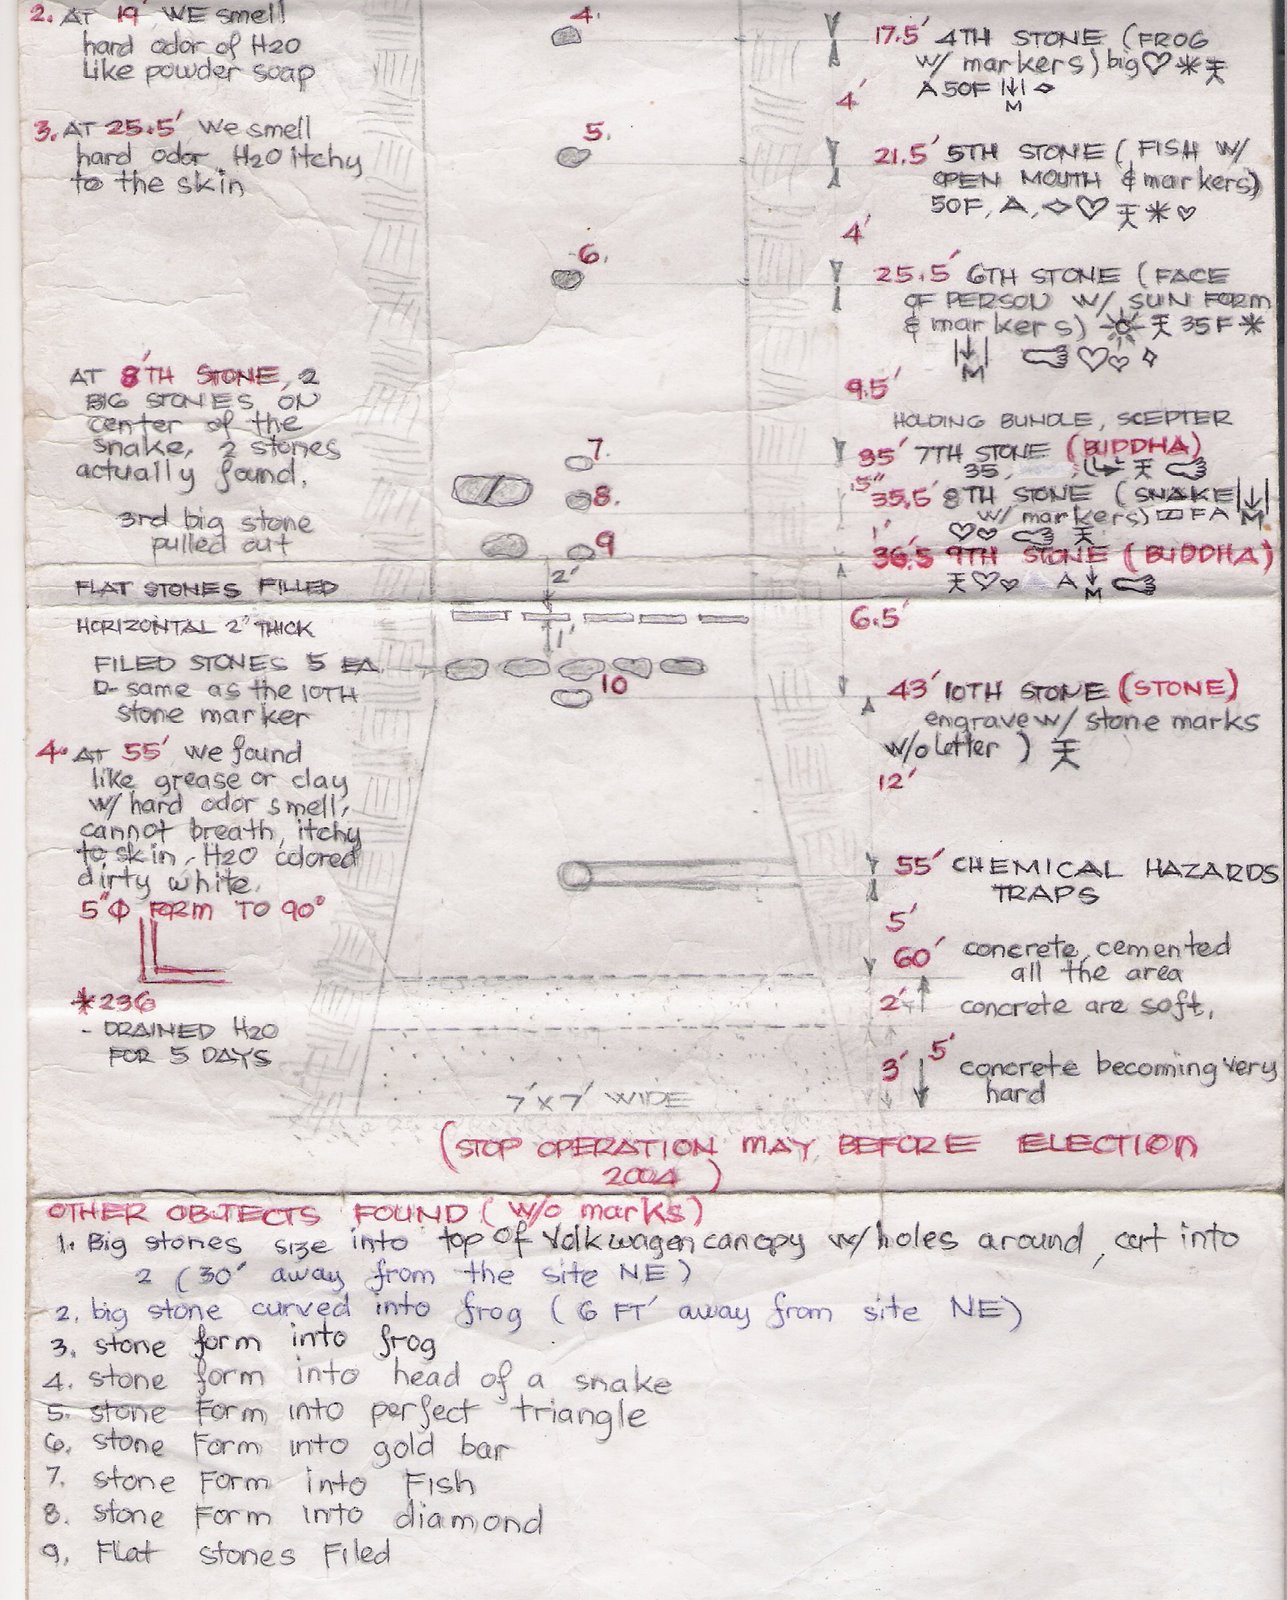 2. AT 19' WE smell
hard odor of H2O
like powder soap
3. AT 25.5' we smell
hard odor H2O itchy
to the skin
AT 8'TH STONE, 2
BIG STONES ON
center of the
snake, 2 stones
actually found.
3rd big stone
pulled out
FLAT STONES FILLED
HORIZONTAL 2" THICK
FILED STONES 5 EA
D- same as the 10TH
stone marker
4. AT 55' we found
like grease or clay
w/ hard odor smell,
cannot breath, itchy
to skin, H2O colored
dirty white.
5"Φ FORM TO 90°
*236
- DRAINED H2O
FOR 5 DAYS
4.
5.
6.
7.
8.
9
2'
1'
10
7' x 7' WIDE
17.5' 4TH STONE (FROG
w/ markers) big ♡ * 天
A 50F |↓| ◇
M
4'
21.5' 5TH STONE ( FISH W/
OPEN MOUTH & markers)
50F, A, ◇ ♡ 天 * ♡
4'
25.5' 6TH STONE ( FACE
OF PERSON W/ SUN FORM
& markers) ☼ 天 35 F *
|↓| ♡ ♡ ◇
M
9.5'
HOLDING BUNDLE, SCEPTER
35' 7TH STONE (BUDDHA)
35, 天
.5" 35.5' 8TH STONE ( SNAKE |↓|
w/ markers) F A M
1' ♡ ♡ 天
36.5 9TH STONE ( BUDDHA)
天 ♡ ♡ A ↓
M
6.5'
43' 10TH STONE (STONE)
engrave w/ stone marks
w/o letter ) 天
12'
55' CHEMICAL HAZARDS
TRAPS
5'
60' concrete, cemented
all the area
2' concrete are soft.
3' 5' concrete becoming very
hard
(STOP OPERATION MAY BEFORE ELECTION
2004 )
OTHER OBJECTS FOUND ( w/o marks)
1. Big stones size into top of Volkwagen canopy w/ holes around, cut into
2 ( 30' away from the site NE )
2. big stone curved into frog ( 6 FT' away from site NE)
3. stone form into frog
4. stone form into head of a snake
5. stone form into perfect triangle
6. stone form into gold bar
7. stone form into Fish
8. stone form into diamond
9. Flat stones Filed